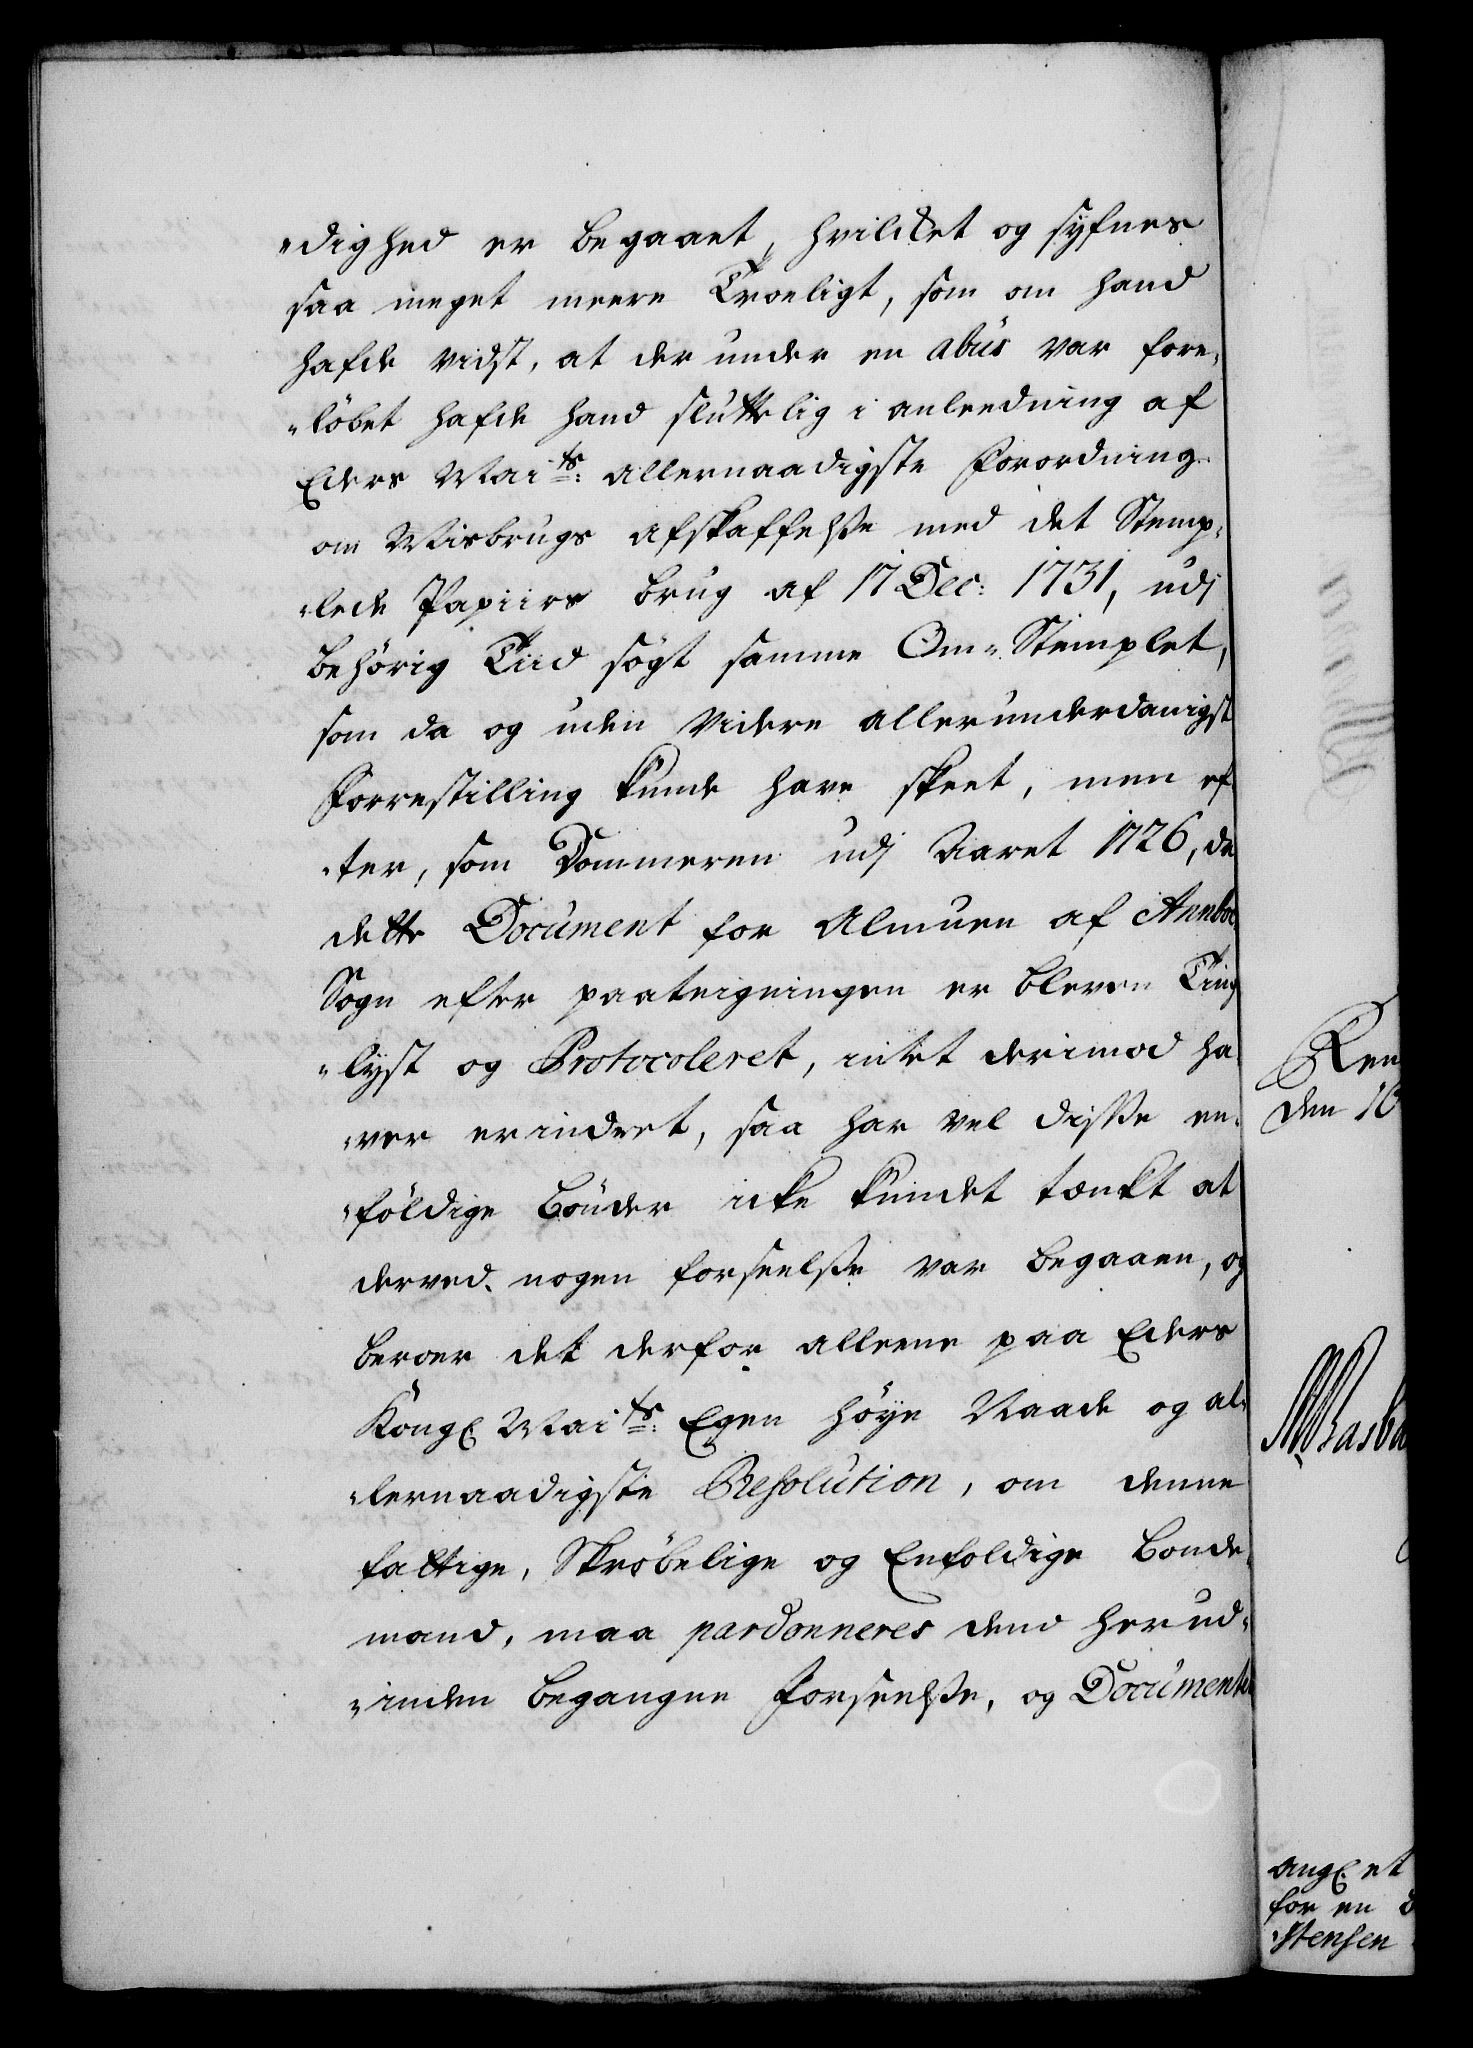 "dighed er begaaet, hvilcket og syfnes
saa meget meere Troeligt, som om hand
hafde vidst, at der under en abùs var fore„
„löbet hafde hand slutteʟig i anleedning af
Eders Mai<sup>ts</sup>: allernaadigste Forordning
om Misbrugs afskaffelße med det Stemp„
„lede Papiirs brug af 17 Dec: 1731, udj
behörig Tiid sögt samme Om„Stemplet,
som da og uden Videre allerunderdanigst
Forrestilling kunde have skeet, men ef
„ter, som Dommeren udj Aaret 1726, da
dette Document for Almuen af
Sogn efter paateigningen er bleven Ting
„lyst og Protocoleret, intet derimod ha„
„ver erindret, saa har vel disße een„
„földige Bönder icke kundet tænkt at
derved nogen forseelße var begaaen, og
beroer det derfor alleene paa Eders
Kongl Mai<sup>ts</sup>: Egen höye Naade og al„
„lernaadigste Resolution, om denne
fattige, Skröbelige og Enfoldige Bonde„
mand, maa pardonneres dend herud„
„inden begangne Forseelße, og Documentet
Ren
den 16
ang<sup>l</sup>. et
for en
Stensen